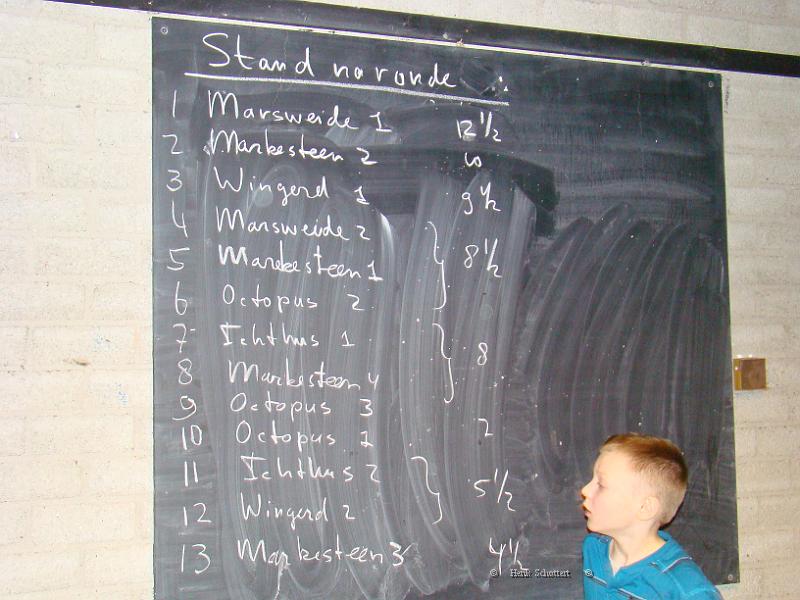 Stand na ronde :
1 Marsweide 1 12 1/2
2 Markesteen 2 10
3 Wingerd 1 9 1/2
4 Marsweide 2
5 Markesteen 1 8 1/2
6 Octopus 2
7 Ichthus 1
8 Markesteen 4 8
9 Octopus 3
10 Octopus 1 7
11 Ichthus 2
12 Wingerd 2 5 1/2
13 Markesteen 3 4 1/2
© Henk Schottert ©